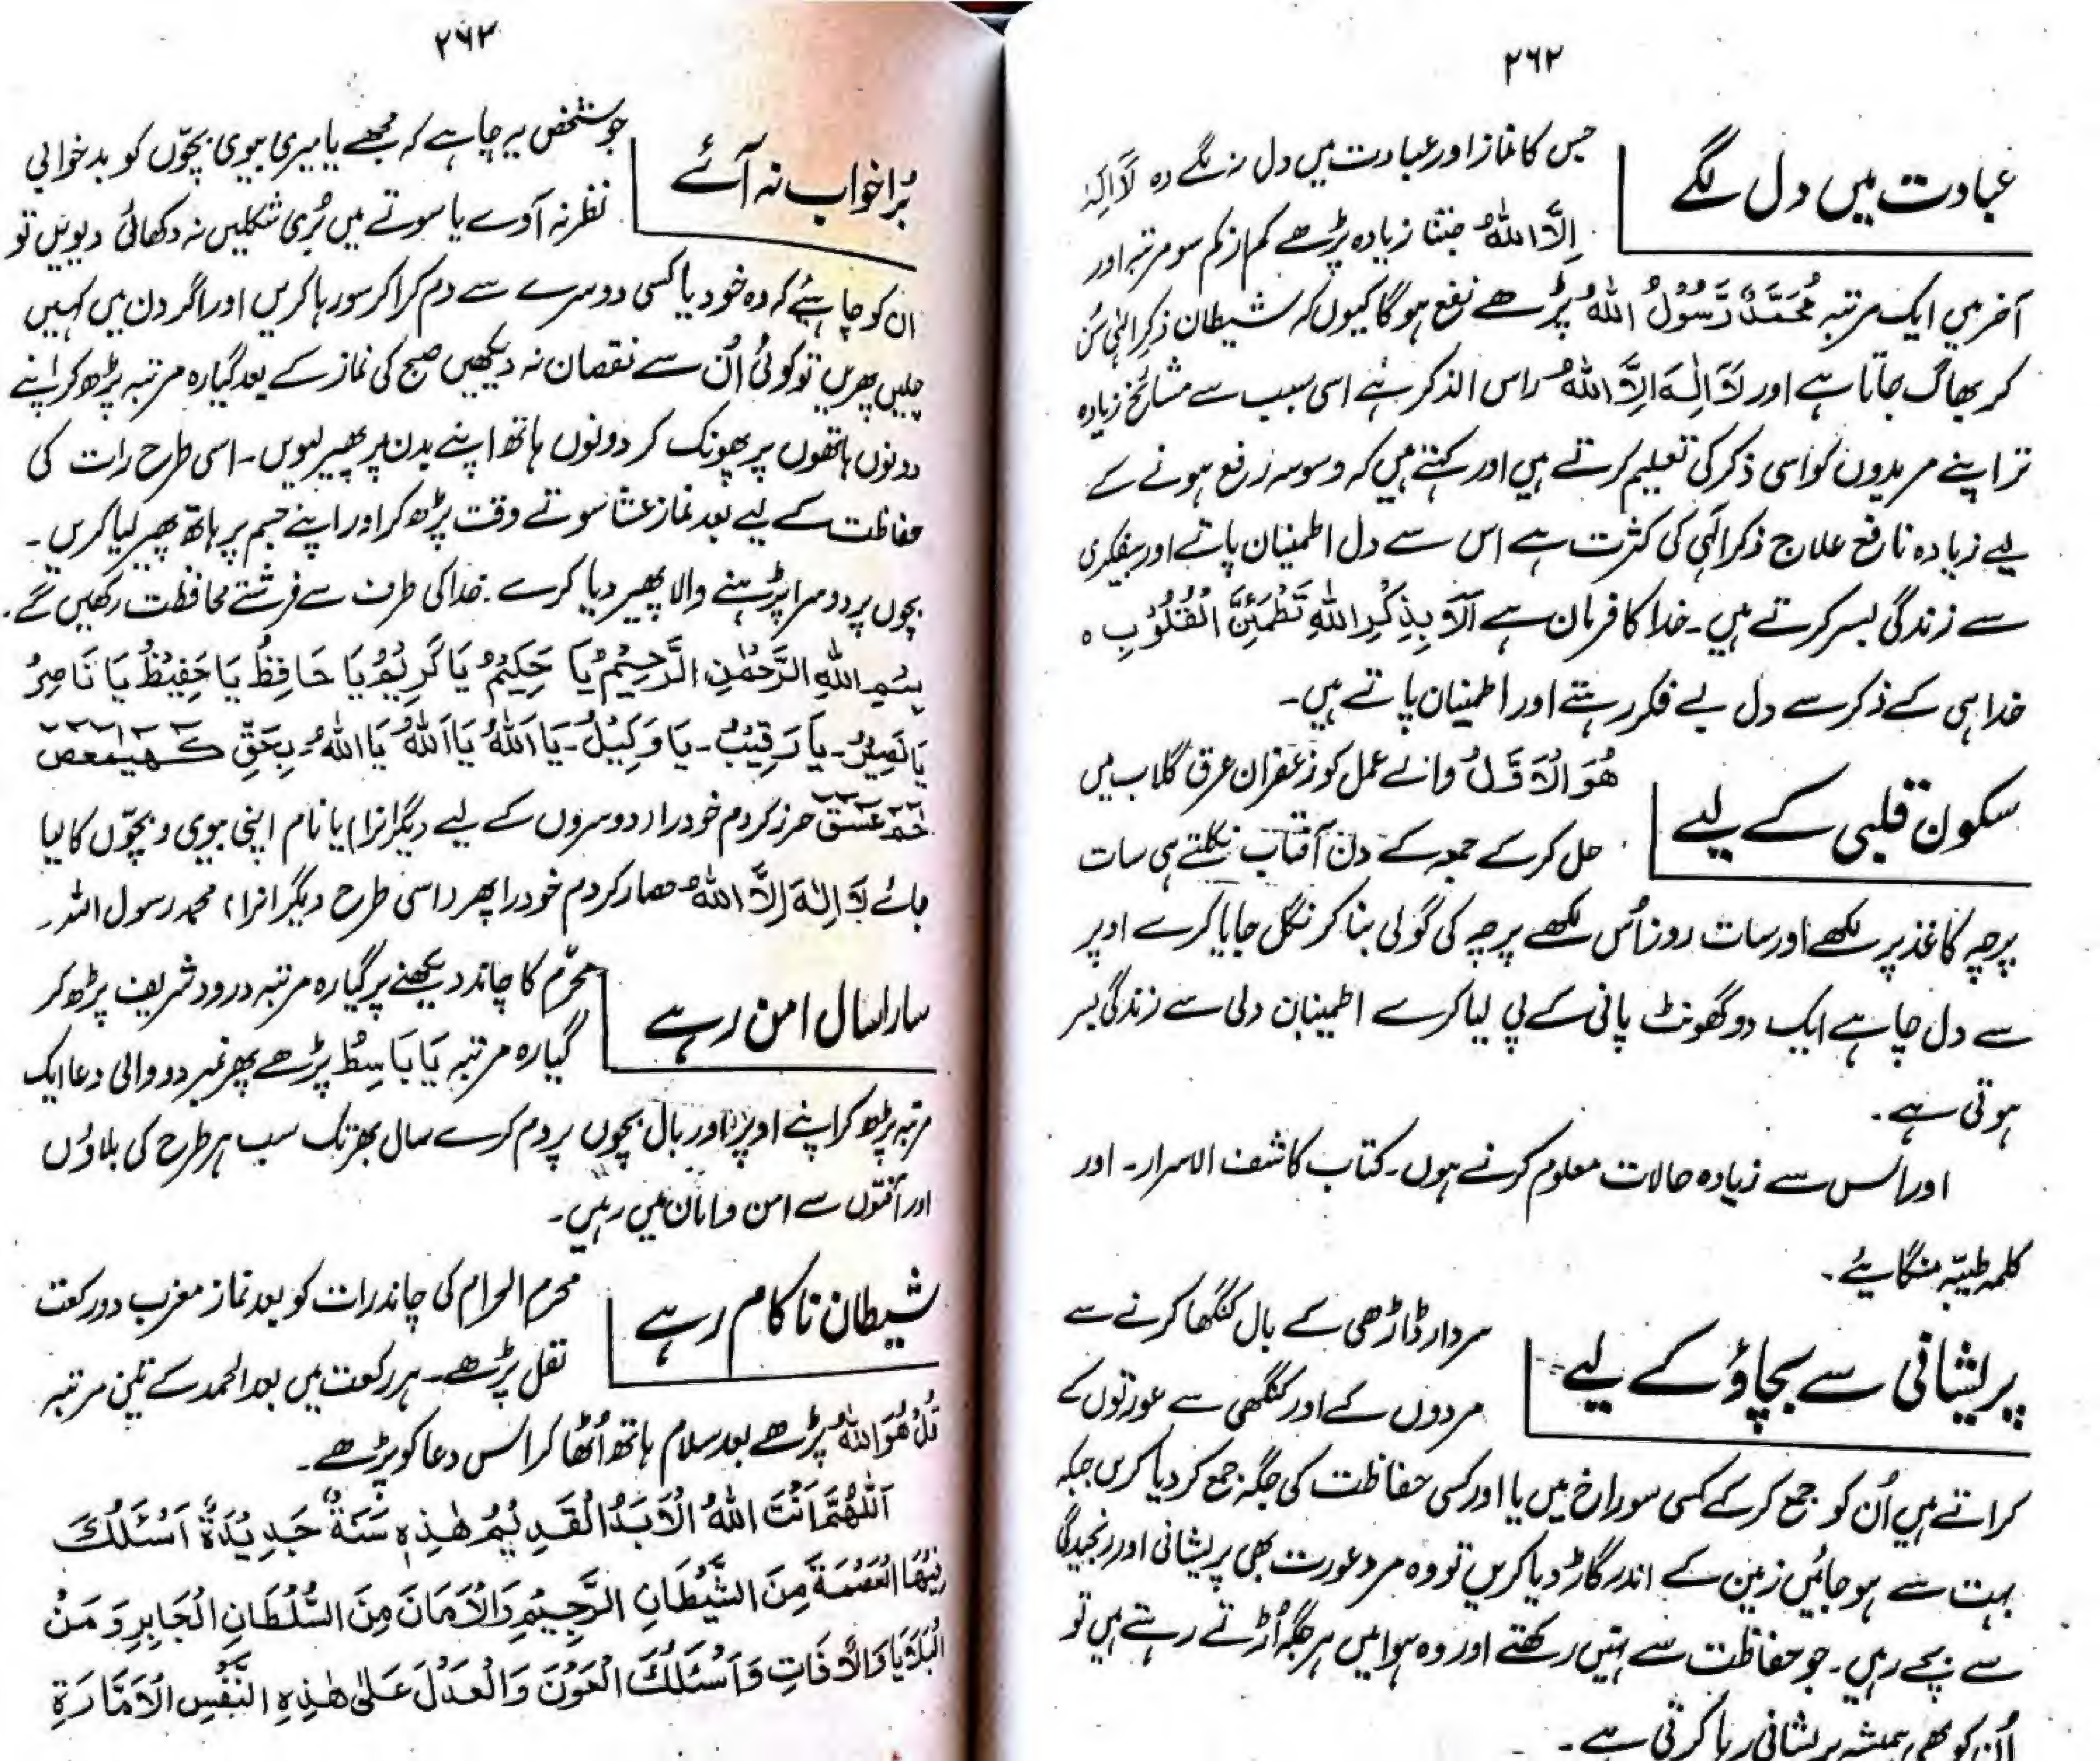 ۲۶۲
عبادت میں دل لگے
جس کا نماز اور عبادت میں دل نہ لگے وہ لَا اِلٰہَ
اِلَّا اللہُ جتنا زیادہ پڑھے کم از کم سو مرتبہ اور
آخر میں ایک مرتبہ مُحَمَّدٌ رَّسُوْلُ اللہُ پڑھے نفع ہو گا کیوں کہ شیطان ذکر الٰہی سُن
کر بھاگ جاتا ہے اور لَا اِلٰہَ اِلَّا اللہُ راس الذکر ہے اسی سبب سے مشائخ زیادہ
تر اپنے مریدوں کو اسی ذکر کی تعلیم کرتے ہیں اور کہتے ہیں کہ وسوسہ رفع ہونے کے
لیے زیادہ نافع علاج ذکر الٰہی کی کثرت ہے اس سے دل اطمینان پاتے اور بیفکری
سے زندگی بسر کرتے ہیں۔ خدا کا فرمان ہے اَلَا بِذِکْرِ اللہِ تَطْمَئِنَّ الْقُلُوْبِ ہ
خدا ہی کے ذکر سے دل بے فکر رہتے اور اطمینان پاتے ہیں۔
سکون قلبی کے لیے
ھُوَ الْاَوَّلُ والے عمل کو زعفران عرق گلاب میں
حل کر کے جمعہ کے دن آفتاب نکلتے ہی سات
پرچہ کاغذ پر لکھے اور سات روز اُس لکھے پرچہ کی گولی بنا کر نگل جایا کرے اوپر
سے دل چاہے ایک دو گھونٹ پانی کے پی لیا کرے اطمینان دلی سے زندگی بسر
ہوتی ہے۔
اور اس سے زیادہ حالات معلوم کرنے ہوں۔ کتاب کاشف الاسرار۔ اور
کلمہ طیبّہ منگائیے۔
پریشانی سے بچاؤ کے لیے
سر دار ڈاڑھی کے بال کنگھا کرنے سے
مردوں کے اور کنگھی سے عورتوں کے
کراتے ہیں اُن کو جمع کر کے کسی سوراخ میں یا اور کسی حفاظت کی جگہ جمع کر دیا کریں جبکہ
بہت سے ہو جائیں زمین کے اندر گاڑ دیا کریں تو وہ مرد عورت بھی پریشانی اور رنجیدگی
سے بچے رہیں۔ جو حفاظت سے نہیں رکھتے اور وہ ہوا میں ہر جگہ اُڑتے رہتے ہیں تو
اُن کو بھی ہمیشہ پریشانی رہا کرتی ہے۔
۲۶۳
بُرا خواب نہ آئے
جو شخص یہ چاہے کہ مجھے یا میری بیوی بچّوں کو بدخوابی
نظر نہ آوے یا سوتے میں بُری شکلیں نہ دکھائی دیویں تو
ان کو چاہئے کہ وہ خود یا کسی دوسرے سے دم کرا کر سو رہا کریں اور اگر دن میں کہیں
چلیں پھریں تو کوئی اُن سے نقصان نہ دیکھیں صبح کی نماز کے بعد گیارہ مرتبہ پڑھ کر اپنے
دونوں ہاتھوں پر پھونک کر دونوں ہاتھ اپنے بدن پر پھیر لیویں۔ اسی طرح رات کی
حفاظت کے لیے بعد نماز عشا سوتے وقت پڑھ کر اور اپنے جسم پر ہاتھ پھیر لیا کریں۔
بچوں پر دوسرا پڑہنے والا پھیر دیا کرے۔ خدا کی طرف سے فرشتے محافظت رکھیں گے۔
بِسْمِ اللہِ الرَّحْمٰنِ الرَّحِیْمِ یَا حَکِیْمُ یَا کَرِیْمُ یَا حَافِظُ یَا حَفِیْظُ یَا نَاصِرُ
یَا نَصِیْرُ۔ یَا رَقِیْبُ۔ یَا وَکِیْلُ۔ یَا اَللہُ یَا اَللہُ یَا اللہُ۔ بِحَقِّ کٓھٰیٰعٓصٓ
حٰمٓ عٓسٓقٓ حرز کردم خود را (دوسروں کے لیے دیگرانرا) یا نام اپنی بیوی و بچّوں کا لیا
جائے لَا اِلٰہَ اِلَّا اللہُ حصار کردم خود را پھر (اسی طرح دیگرانرا) محمد رسول اللہ۔
سارا سال امن رہے
محرّم کا چاند دیکھنے پر گیارہ مرتبہ درود شریف پڑھ کر
گیارہ مرتبہ یَا بَاسِطُ پڑھے پھر نمبر دو والی دعا ایک
مرتبہ پڑھ کر اپنے اوپر اور بال بچوں پر دم کرے سال بھر تک سب ہر طرح کی بلاؤں
اور آفتوں سے امن و امان میں رہیں۔
شیطان ناکام رہے
محرم الحرام کی چاند رات کو بعد نماز مغرب دو رکعت
نفل پڑھے۔ ہر رکعت میں بعد الحمد کے تین مرتبہ
قُلْ ھُوَ اللہُ پڑھے بعد سلام ہاتھ اُٹھا کر اس دعا کو پڑھے۔
اَللّٰھُمَّ اَنْتَ اللہُ الْاَبَدُ الْقَدِیْمُ ھٰذِہٖ سَنَۃٌ جَدِیْدَۃٌ اَسْئَلُکَ
فِیْھَا الْعَصْمَۃَ مِنَ الشَّیْطَانِ الرَّجِیْمِ وَالْاَمَانَ مِنَ السُّلْطَانِ الْجَابِرِ وَ مَنْ
الْبَلَایَا وَالْاٰفَاتِ وَاَسْئَلُکَ الْعَوْنَ وَالْعَدْلَ عَلٰی ھٰذِہِ النَّفْسِ الْاَمَّارَۃِ